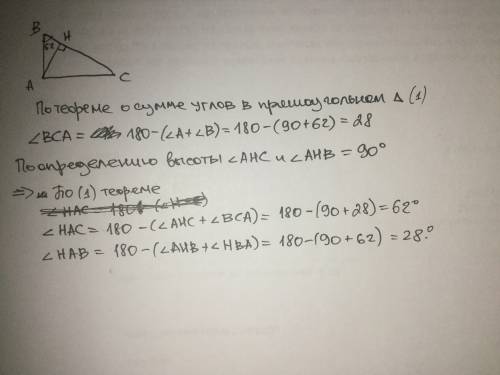 B
H
62
A
C
По теореме о сумме углов в прямоугольном Δ (1)
∠BCA = 180-(∠A+∠B)=180-(90+62)=28
По определению высоты ∠AHC и ∠AHB = 90°
=> по (1) теореме
∠HAC = 180 - (∠H
∠HAC = 180 -(∠AHC+∠BCA)= 180-(90+28)=62°
∠HAB = 180-(∠AHB+∠HBA)= 180-(90+62) = 28.°